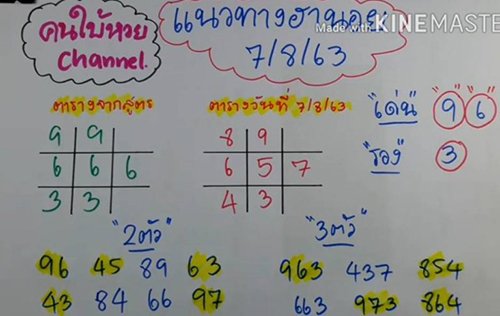 คนใบ้หวย
Channel.
แนวทางฮานอย
7/8/63
Made with KINEMASTER
ตารางจากสูตร
9 9
6 6 6
3 3
ตารางวันที่ 7/8/63
8 9
6 5 7
4 3
"เด่น" "9" "6"
"รอง" 3
"2ตัว"
96 45 89 63
43 84 66 97
"3ตัว"
963 437 854
663 973 864